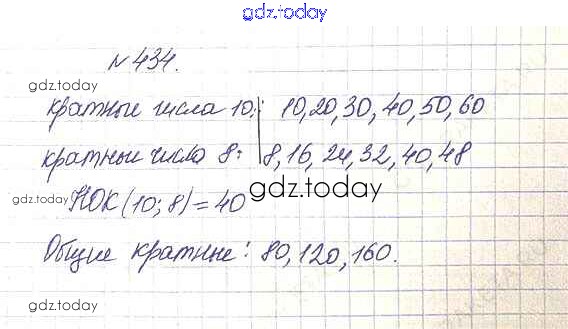 gdz.today
№434.
gdz.today
кратные числа 10: 10, 20, 30, 40, 50, 60
кратные числа 8: 8, 16, 24, 32, 40, 48
gdz.today
НОК (10; 8) = 40
gdz.today
Общие кратные: 80, 120, 160.
gdz.today